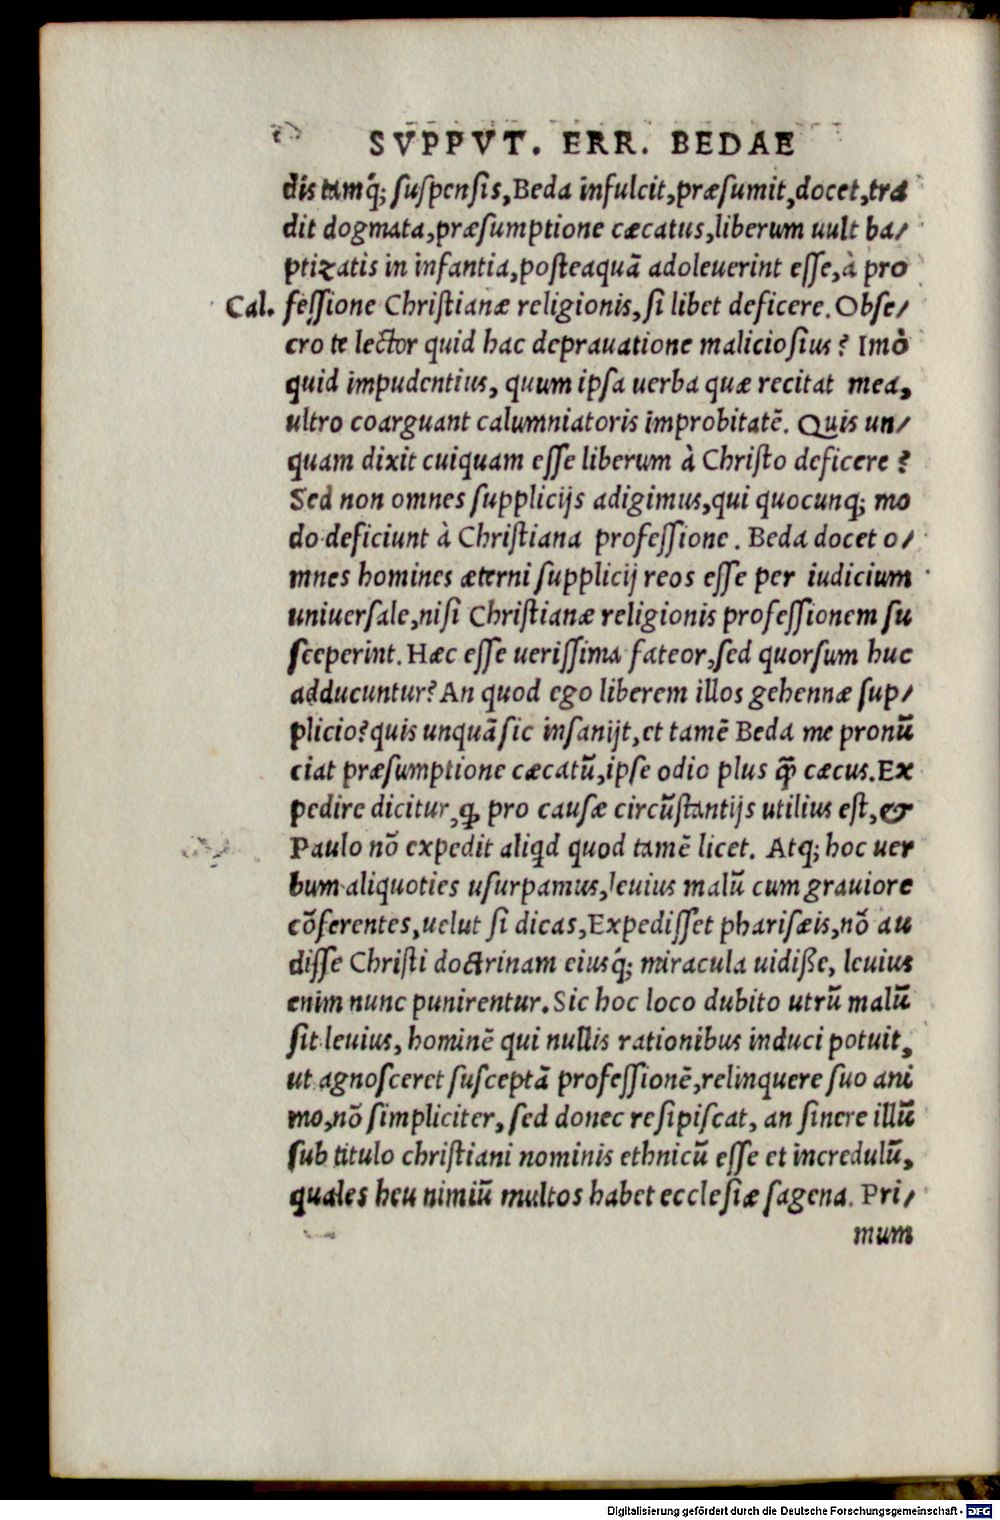 SVPPVT. ERR. BEDAE
dis tamq́; suspensis, Beda infulcit, præsumit, docet, tra
dit dogmata, præsumptione cæcatus, liberum uult ba/
ptizatis in infantia, posteaquã adoleuerint esse, à pro
Cal. fessione Christianæ religionis, si libet deficere. Obse/
cro te lector quid hac deprauatione maliciosius? Imò
quid impudentius, quum ipsa uerba quæ recitat mea,
ultro coarguant calumniatoris improbitatẽ. Quis un/
quam dixit cuiquam esse liberum à Christo deficere?
Sed non omnes supplicijs adigimus, qui quocunq; mo
do deficiunt à Christiana professione. Beda docet o/
mnes homines æterni supplicij reos esse per iudicium
uniuersale, nisi Christianæ religionis professionem su
sceperint. Hæc esse uerissima fateor, sed quorsum huc
adducuntur? An quod ego liberem illos gehennæ sup/
plicio? quis unquã sic insanijt, et tamẽ Beda me pronũ
ciat præsumptione cæcatũ, ipse odio plus q̃ cæcus. Ex
pedire dicitur, ꝙ pro causæ circũstantijs utilius est, &
Paulo nõ expedit aliqd quod tamẽ licet. Atq; hoc uer
bum aliquoties usurpamus, leuius malũ cum grauiore
cõferentes, uelut si dicas, Expedisset pharisæis, nõ au
disse Christi doctrinam eiusq́; miracula uidiße, leuius
enim nunc punirentur. Sic hoc loco dubito utrũ malũ
sit leuius, hominẽ qui nullis rationibus induci potuit,
ut agnosceret susceptã professionẽ, relinquere suo ani
mo, nõ simpliciter, sed donec resipiscat, an sinere illũ
sub titulo christiani nominis ethnicũ esse et incredulũ,
quales heu nimiũ multos habet ecclesiæ sagena. Pri/
mum
Digitalisierung gefördert durch die Deutsche Forschungsgemeinschaft - DFG